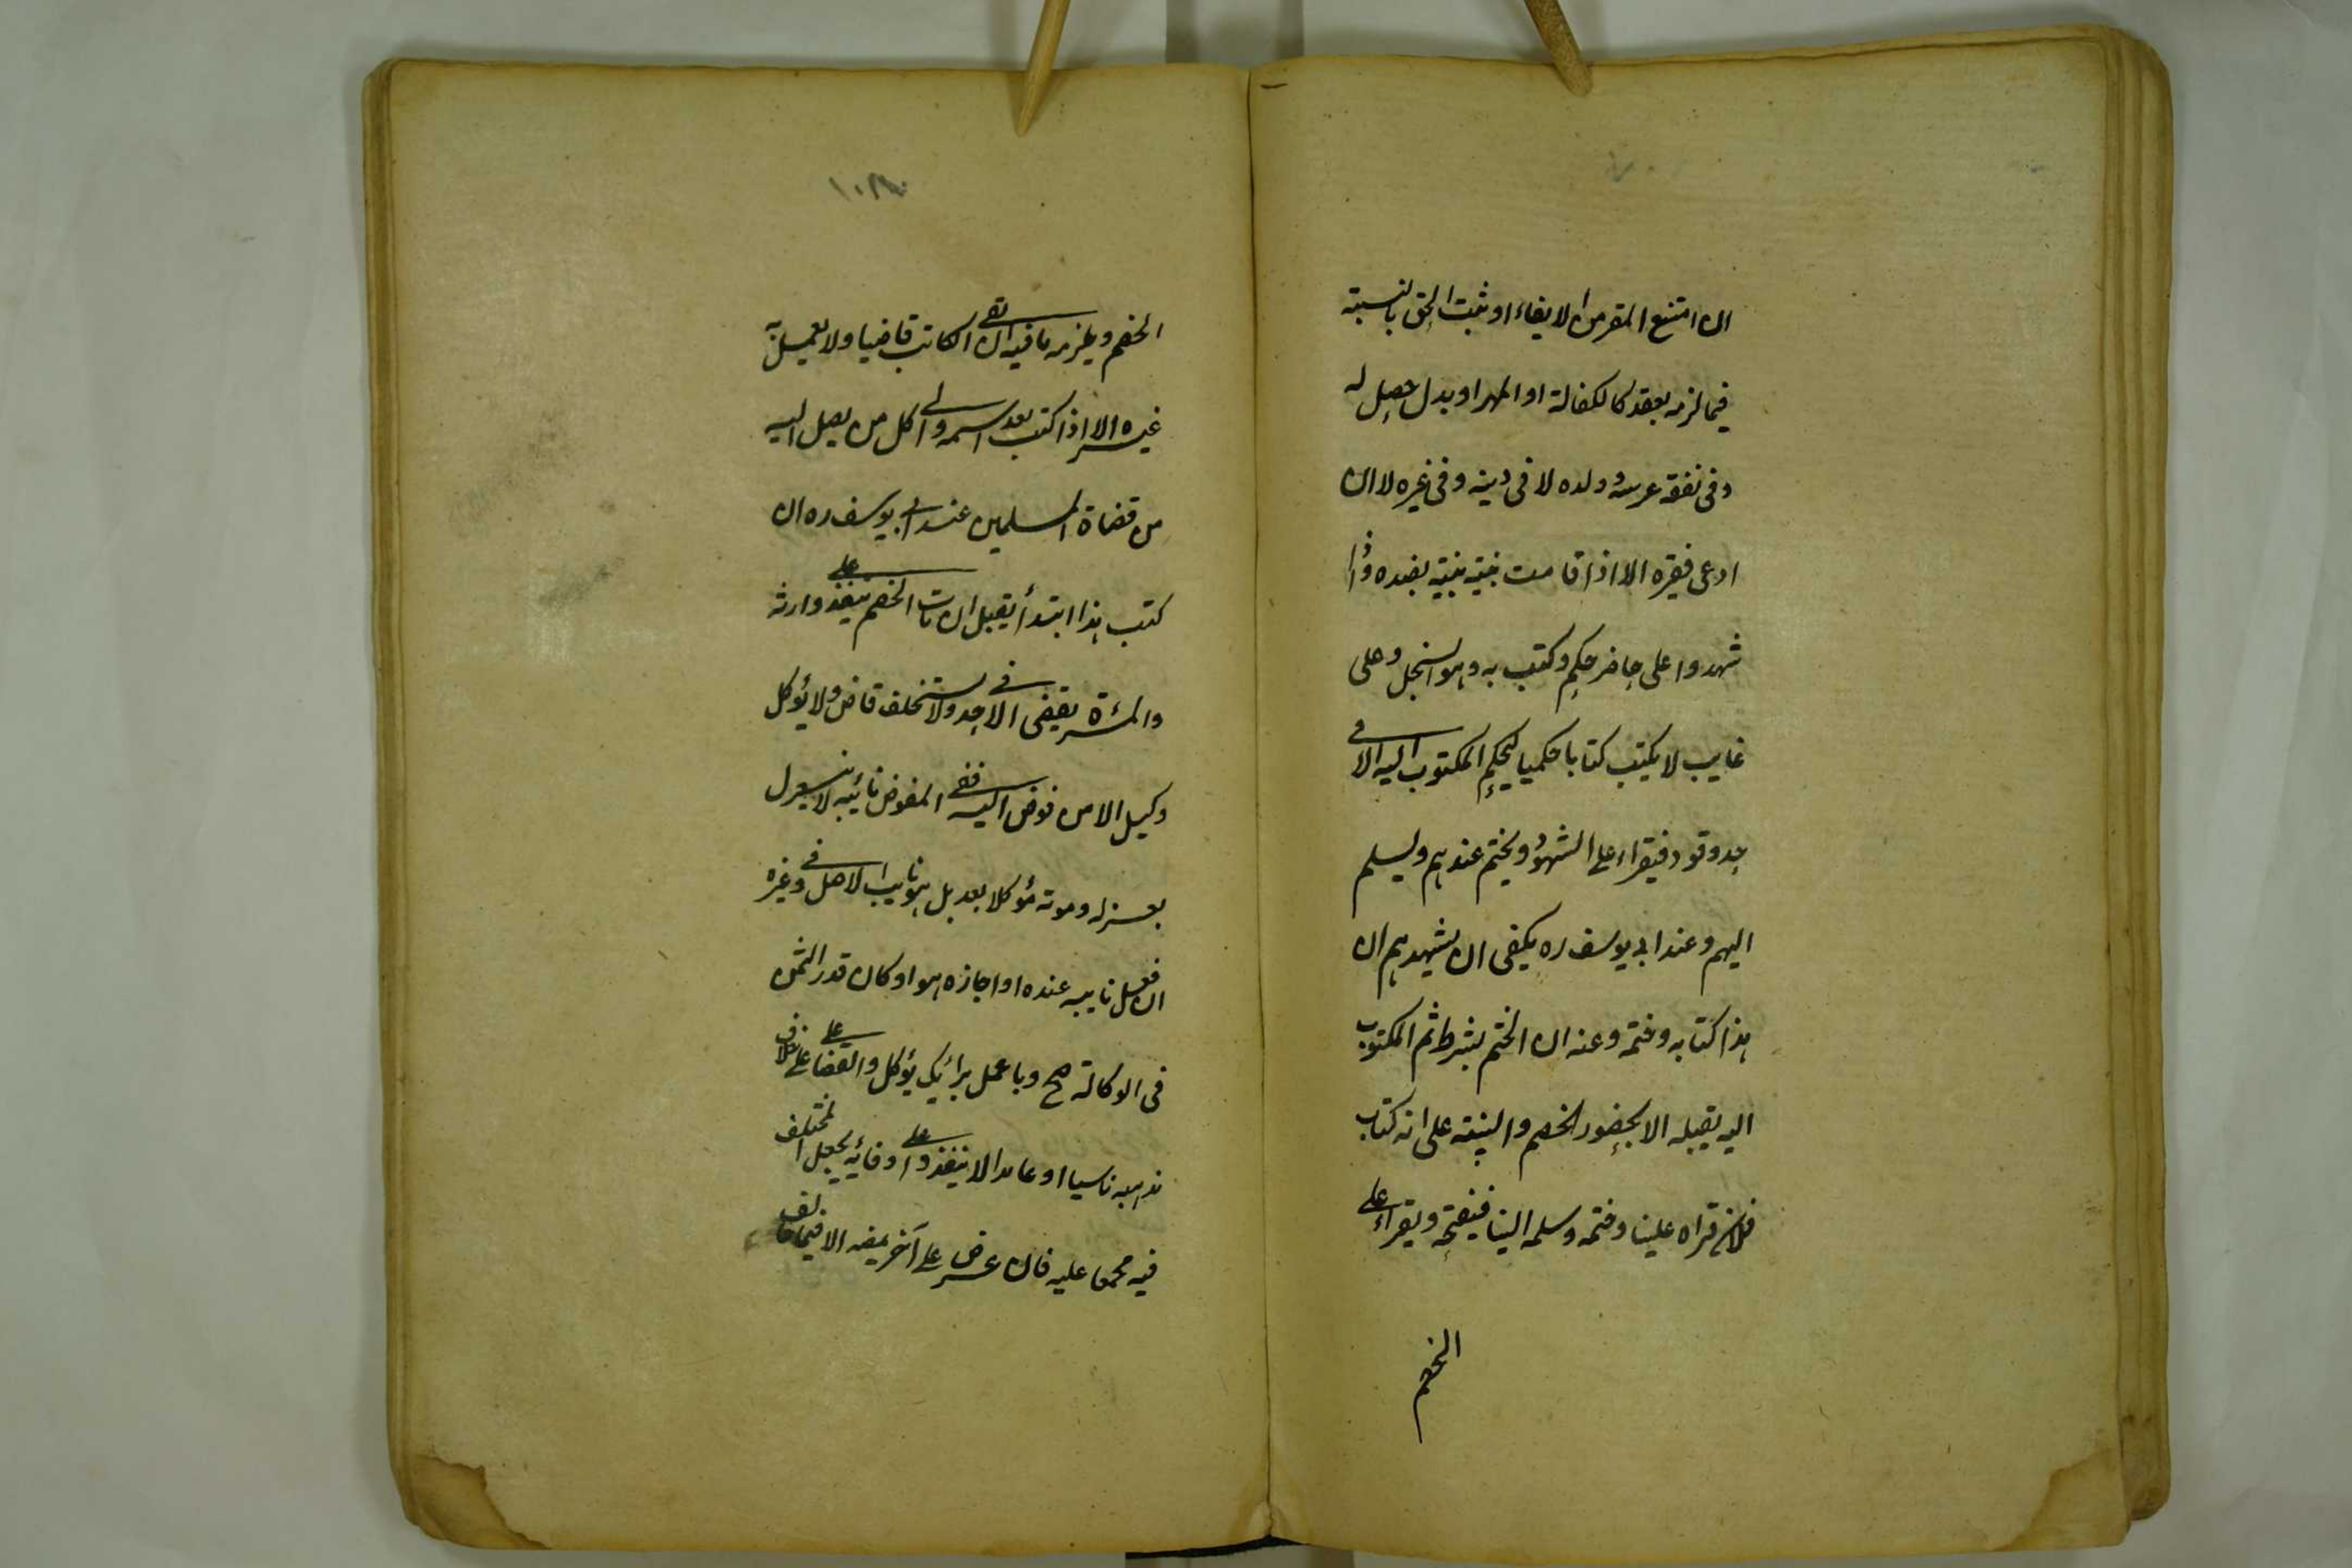 ان امتنع المقر من الايفاء او ثبت الحق بالبينة
فيما لزمه بعقد كالكفالة او المهر او بدل حصل له
وفى نفقة عرسه وولده لا فى دينه وفى غيره لا ان
ادعى فقره الا اذا قامت بينة بضده واذا
شهدوا على حاضر حكم وكتب به وهو السجل وعلى
غايب لا يكتب كتابا حكميا ليحكم المكتوب اليه الا فى
حد وقود فيقراء على الشهود ويختم عندهم ويسلم
اليهم وعند ابى يوسف ره يكفى ان يشهدهم ان
هذا كتابه وختمه وعنه ان الختم بشرط ثم المكتوب
اليه يقبله الا بحضور الخصم والبينة على انه كتاب
فلان قراه علينا وختمه وسلمه الينا فيفتحه ويقراء على
الخصم
١٠٨
الخصم ويلزمه ما فيه ان بقى الكاتب قاضيا ولا يعمل به
غيره الا اذا كتب بعد اسمه والى كل من يصل اليه
من قضاة المسلمين عند ابى يوسف ره ان
كتب هذا ابتدأ يقبل ان مات الخصم ينفذ على وارثه
والمرءة تقضى الا فى حد ولا يستخلف قاض ولا يؤكل
وكيل الا من فوض اليه ففى المفوض نائبه لا ينعزل
بعزله وموته مؤكلا بعد بل هو نايب الاصل وفى غيره
ان فعل نايبه عنده او اجازه هو او كان قدر الثمن
فى الوكالة صح وباعمل برائك يؤكل والقضا على خلاف
مذهبه ناسيا او عامدا لا ينفذ وعلى وفائه يجعل المختلف
فيه مجمعا عليه فان عرض على آخر يمضه الا فيما خالف